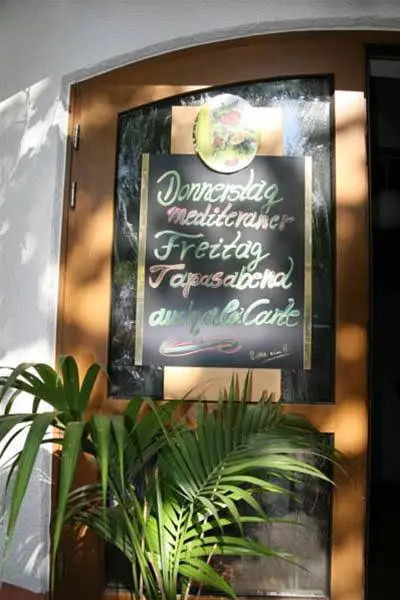 Donnerstag
mediteraner
Freitag
Tapasabend
auch alá Carte